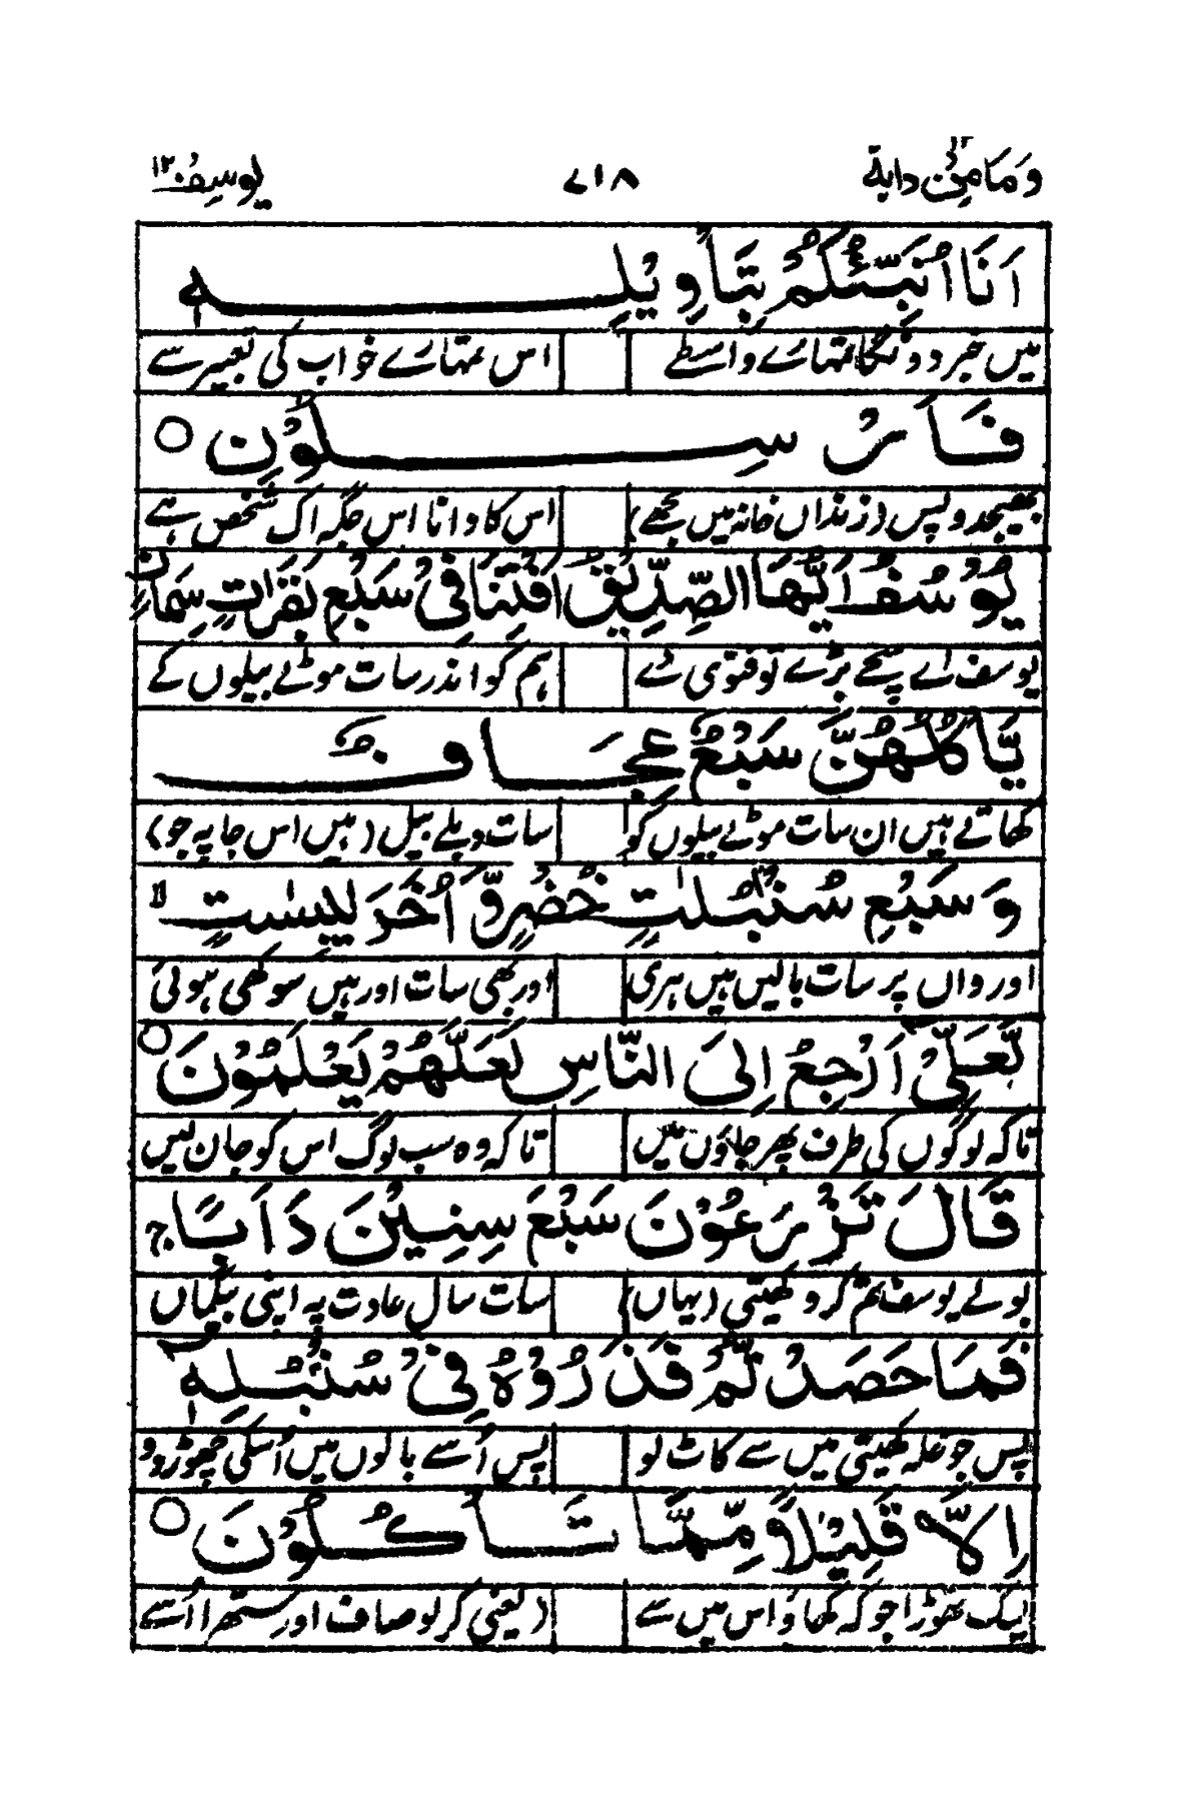 وَمَا مِنْ دابة ١٢ ٧١٨ يوسف ١٢
اَنَا اُنَبِّئُكُمْ بِتَاْوِيْلِهٖ
میں خبر دونگا تمہارے واسطے اس تمہارے خواب کی تعبیر سے
فَاَرْسِلُوْنِ ○
بھیجدو پس (زنداں خانہ میں مجھے) اس کا دانا اس جگہ اک شخص ہے
يُوْسُفُ اَيُّهَا الصِّدِّيْقُ اَفْتِنَا فِيْ سَبْعِ بَقَرَاتٍ سِمَانٍ
یوسف اے سچے بڑے تو فتوی دے ہم کو اندر سات موٹے بیلوں کے
يَّاْكُلُهُنَّ سَبْعٌ عِجَافٌ
کھاتے ہیں ان سات موٹے بیلوں کو سات دبلے بیل (ہیں اس جا پہ جو)
وَسَبْعِ سُنْۢبُلٰتٍ خُضْرٍ وَّاُخَرَ يٰبِسٰتٍ ۙ
اور واں پر سات بالیں ہیں ہری اور بھی سات اور ہیں سوکھی ہوئی
لَّعَلِّيْٓ اَرْجِعُ اِلَى النَّاسِ لَعَلَّهُمْ يَعْلَمُوْنَ ○
تاکہ لوگوں کی طرف پھر جاؤں میں تاکہ وہ سب لوگ اس کو جان لیں
قَالَ تَزْرَعُوْنَ سَبْعَ سِنِيْنَ دَاَبًا ج
بولے یوسف تم کرو کھیتی (یہاں) سات سال عادت پہ اپنی بیگماں
فَمَا حَصَدْتُّمْ فَذَرُوْهُ فِيْ سُنْۢبُلِهٖٓ
پس جو غلہ کھیتی میں سے کاٹ لو پس اُسے بالوں میں اُسکی چھوڑ دو
اِلَّا قَلِيْلًا مِّمَّا تَاْكُلُوْنَ ○
لیک تھوڑا جو کہ کھاؤ اس میں سے (یعنی کر لو صاف اور ستھرا اُسے